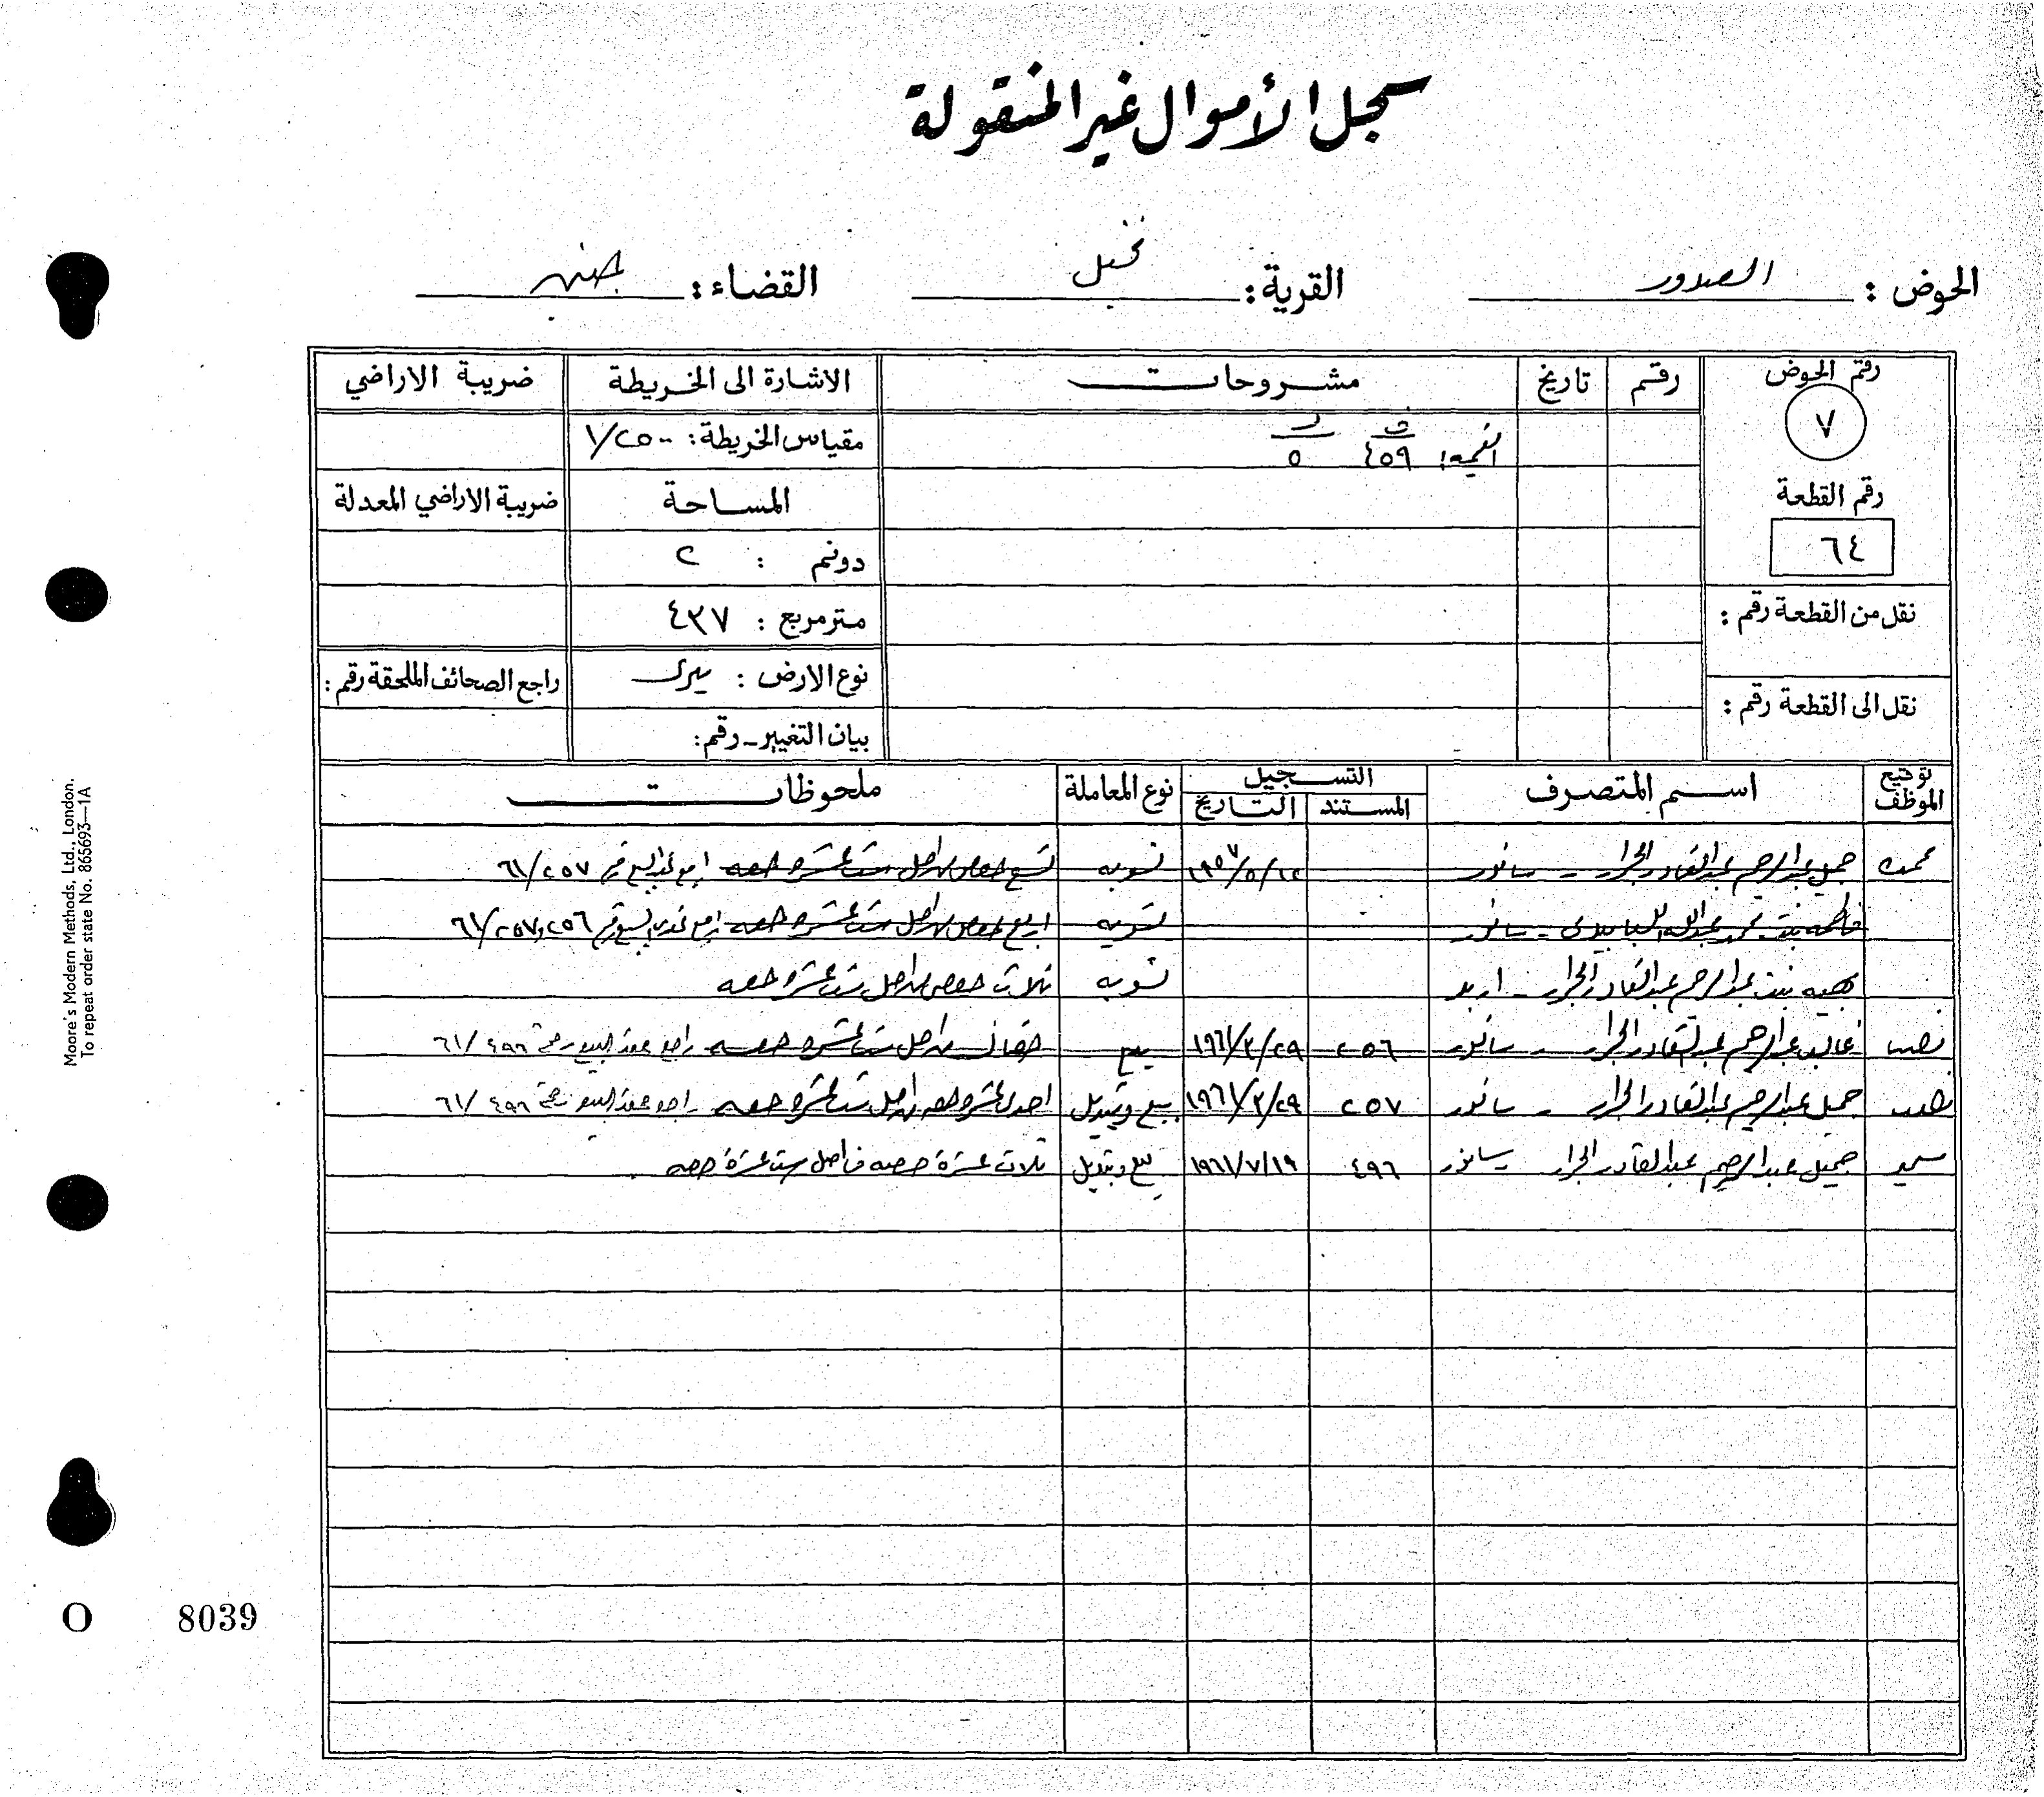 سجل الأموال غير المنقولة
الحوض : الصدور القرية: نخيل القضاء: جنين
رقم الحوض رقم تاريخ مشروحات الاشارة الى الخريطة ضريبة الاراضي
٧ القيمة: ف ٤٥٩ د ٥ مقياس الخريطة: ١/٢٥٠٠
رقم القطعة المساحة ضريبة الاراضي المعدلة
٦٤ دونم : ٢
نقل من القطعة رقم : متر مربع : ٤٣٧
نوع الارض : ميري راجع الصحائف الملحقة رقم :
نقل الى القطعة رقم : بيان التغيير - رقم:
توقيع الموظف اسم المتصرف التسجيل نوع المعاملة ملحوظات
المستند التاريخ
جميل عبدالرحيم عبدالقادر الجرار - سانور ١٩٥٧/٥/١٢ تسويه تسع حصص من اصل ست عشره حصه راجع عقد البيع رقم ٦١/٢٥٧
فاطمه بنت محمد عبدالله - سانور تسويه اربع حصص من اصل ست عشره حصه راجع عقدي البيع رقم ٢٥٦و٦١/٢٥٧
بهيه بنت عبدالرحيم عبدالقادر الجرار - اربد تسويه ثلاث حصص من اصل ست عشره حصه
غالب عبدالرحيم عبدالقادر الجرار - سانور ٢٥٦ ١٩٦١/٣/٢٩ بيع حصتان من اصل ست عشره حصه راجع عقد البيع رقم ٦١/٤٩٦
جميل عبدالرحيم عبدالقادر الجرار - سانور ٢٥٧ ١٩٦١/٣/٢٩ بيع وتبديل احدى عشره حصه من اصل ست عشره حصه راجع عقد البيع رقم ٦١/٤٩٦
جميل عبدالرحيم عبدالقادر الجرار سانور ٤٩٦ ١٩٦١/٧/١٩ بيع وتبديل ثلاث عشرة حصه من اصل ست عشرة حصه
Moore's Modern Methods, Ltd., London.
To repeat order state No. 865693—1A
O 8039